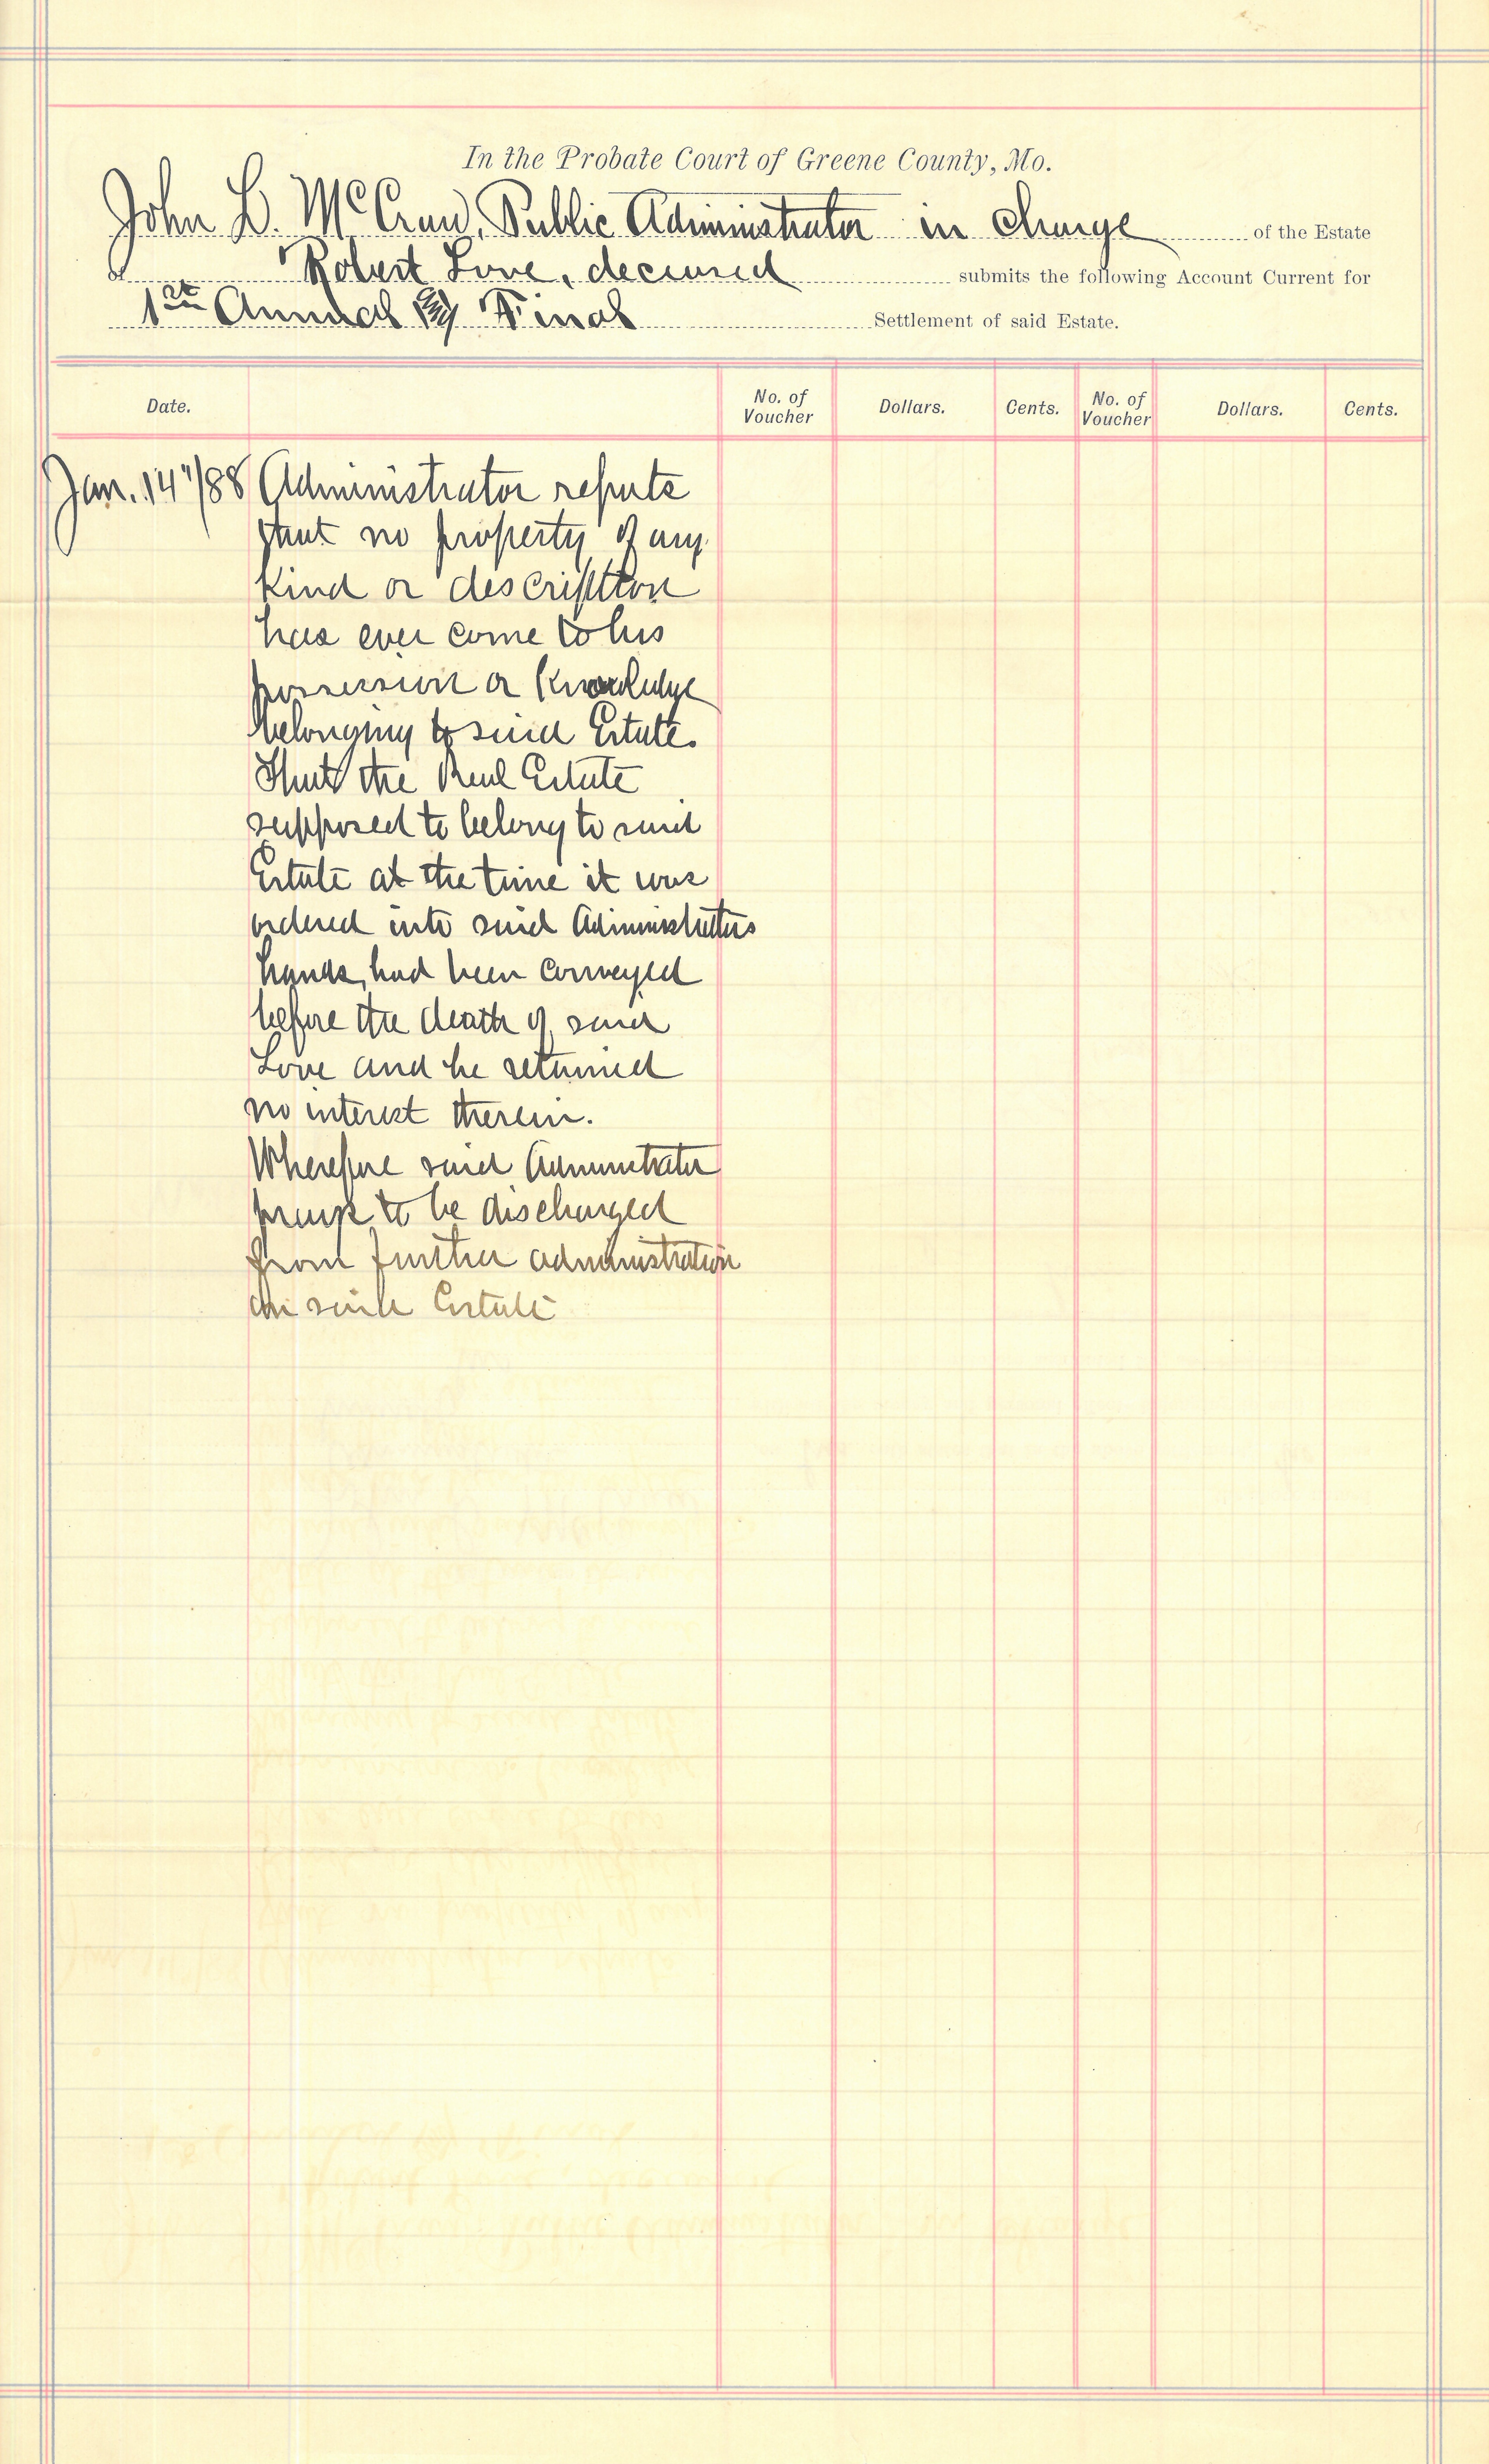 In the Probate Court of Greene County, Mo.
John D. McCraw, Public Administrator in charge of the Estate
of Robert Love, deceased submits the following Account Current for
1st Annual & Final Settlement of said Estate.
Date. No. of Voucher Dollars. Cents. No. of Voucher Dollars. Cents.
Jan. 14"/88 Administrator reports
that no property of any
kind or description
has ever come to his
possession or Knowledge
belonging to said Estate.
That the Real Estate
supposed to belong to said
Estate at the time it was
ordered into said Administrators
hands, had been conveyed
before the death of said
Love and he retained
no interest therein.
Wherefore said Administrator
prays to be discharged
from further administration
on said Estate